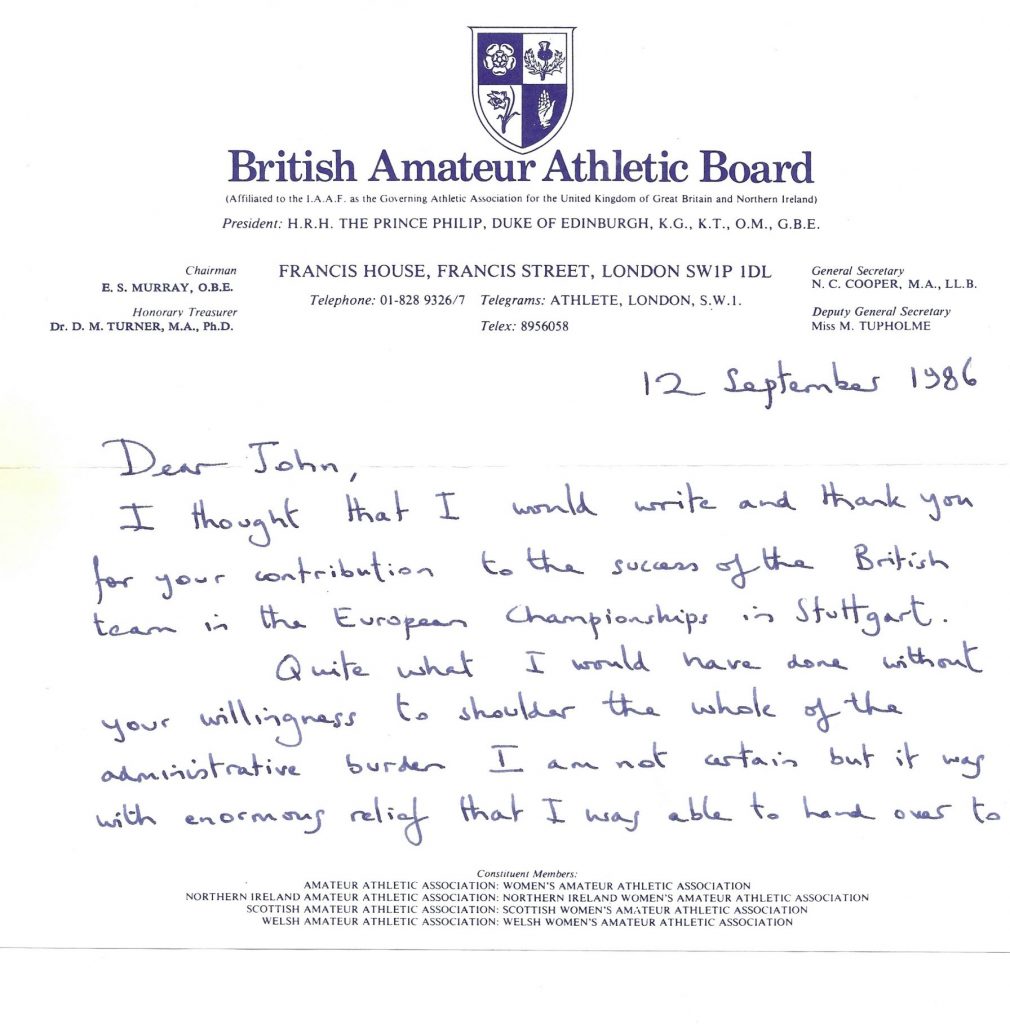 British Amateur Athletic Board
(Affiliated to the I.A.A.F. as the Governing Athletic Association for the United Kingdom of Great Britain and Northern Ireland)
President: H.R.H. THE PRINCE PHILIP, DUKE OF EDINBURGH, K.G., K.T., O.M., G.B.E.
Chairman
E. S. MURRAY, O.B.E.
Honorary Treasurer
Dr. D. M. TURNER, M.A., Ph.D.
FRANCIS HOUSE, FRANCIS STREET, LONDON SW1P 1DL
Telephone: 01-828 9326/7 Telegrams: ATHLETE, LONDON, S.W.1.
Telex: 8956058
General Secretary
N. C. COOPER, M.A., LL.B.
Deputy General Secretary
Miss M. TUPHOLME
12 September 1986
Dear John,
I thought that I would write and thank you
for your contribution to the success of the British
team in the European Championships in Stuttgart.
Quite what I would have done without
your willingness to shoulder the whole of the
administrative burden I am not certain but it was
with enormous relief that I was able to hand over to
Constituent Members:
AMATEUR ATHLETIC ASSOCIATION: WOMEN'S AMATEUR ATHLETIC ASSOCIATION
NORTHERN IRELAND AMATEUR ATHLETIC ASSOCIATION: NORTHERN IRELAND WOMEN'S AMATEUR ATHLETIC ASSOCIATION
SCOTTISH AMATEUR ATHLETIC ASSOCIATION: SCOTTISH WOMEN'S AMATEUR ATHLETIC ASSOCIATION
WELSH AMATEUR ATHLETIC ASSOCIATION: WELSH WOMEN'S AMATEUR ATHLETIC ASSOCIATION